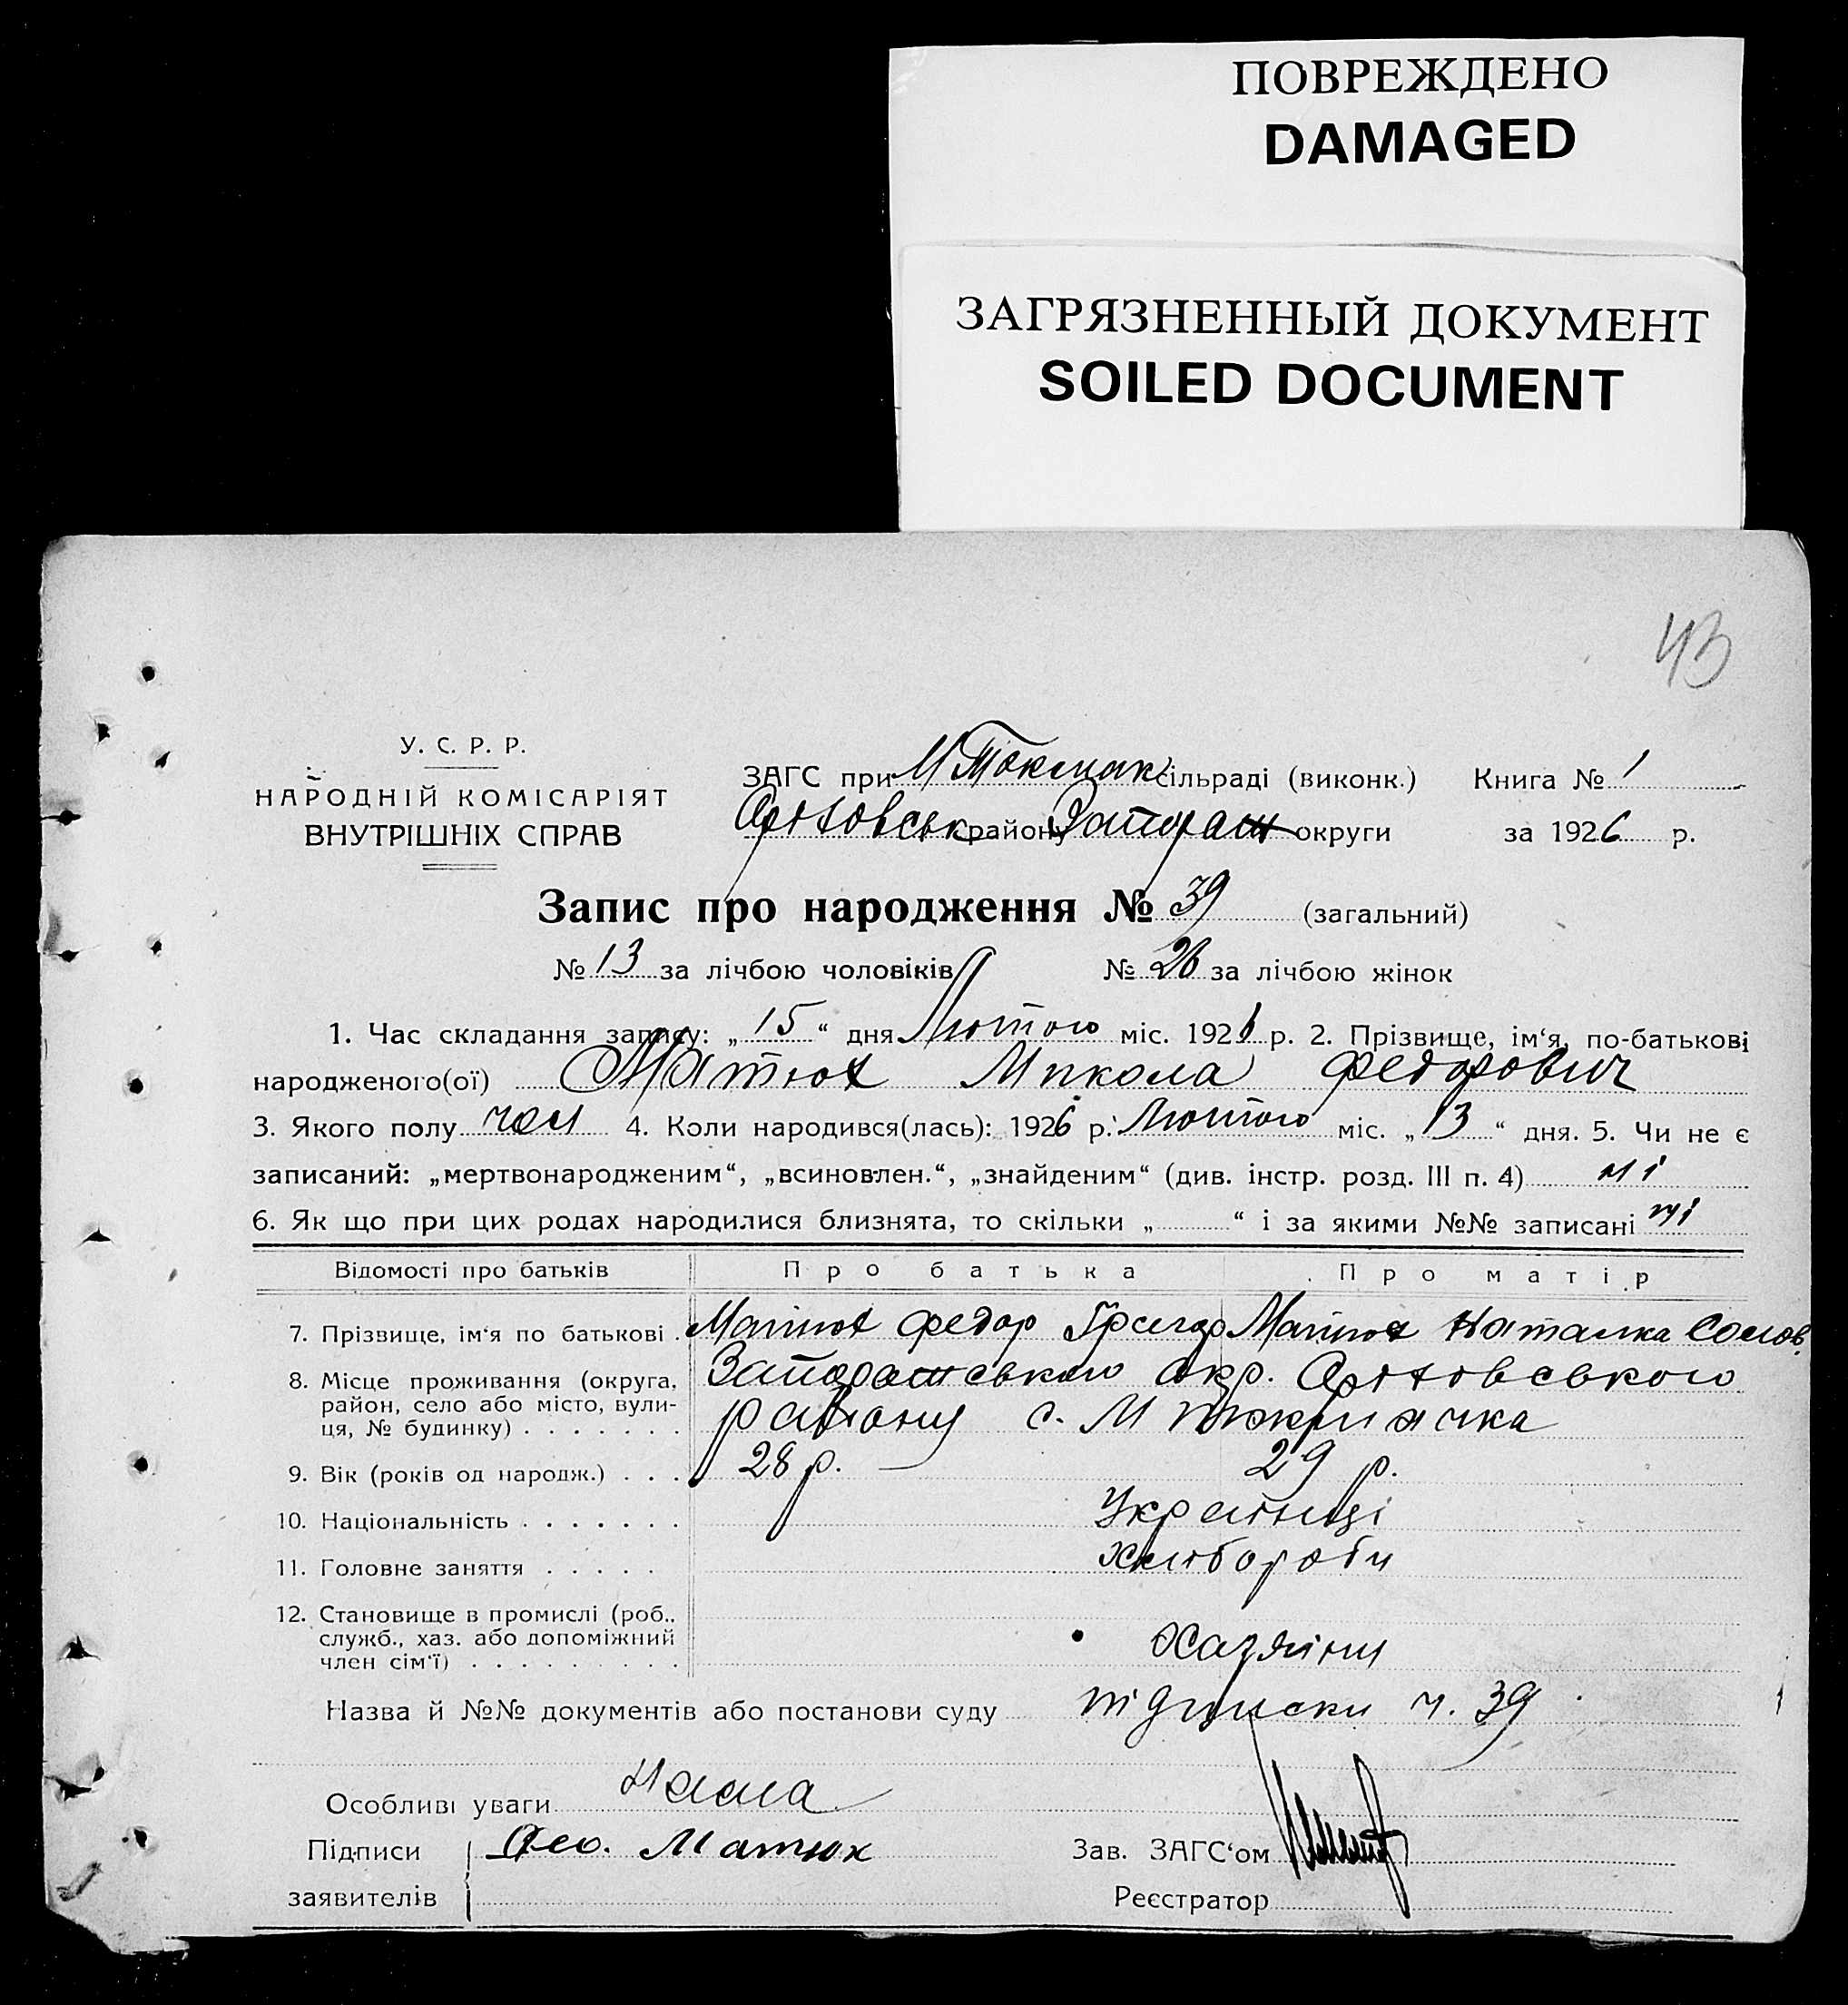 ПОВРЕЖДЕНО
DAMAGED
ЗАГРЯЗНЕННЫЙ ДОКУМЕНТ
SOILED DOCUMENT
43
У. С. Р. Р.
НАРОДНІЙ КОМІСАРІЯТ
ВНУТРІШНІХ СПРАВ
ЗАГС при М Токмак сільраді (виконк.) Книга № 1
Оріховськ району Запораж округи за 1926 р.
Запис про народження № 39 (загальний)
№ 13 за лічбою чоловіків № 26 за лічбою жінок
1. Час складання запису: „15“ дня Лютого міс. 1926 р. 2. Прізвище, ім‘я, по-батькові
народженого(ої) Матюх Микола Федорович
3. Якого полу чол 4. Коли народився(лась): 1926 р. Лютого міс. „13“ дня. 5. Чи не є
записаний: „мертвонародженим“, „всиновлен.“, „знайденим“ (див. інстр. розд. III п. 4) ні
6. Як що при цих родах народилися близнята, то скільки „ “ і за якими №№ записані ні
Відомості про батьків Про батька Про матір
7. Прізвище, ім‘я по батькові . Матюх Федор Григор Матюх Наталка
8. Місце проживання (округа, район, село або місто, вулиця, № будинку) . . . . . . . Запоражського окр. Оріховського
району с. М
9. Вік (років од народж.) . . . 28 р. — 29 р.
10. Національність . . . . . . . Українці
11. Головне заняття . . . . . Хлібороби
12. Становище в промислі (роб., служб., хаз. або допоміжний член сім‘ї) . . . . . . . . . Хазяіни
Назва й №№ документів або постанови суду підписки ч. 39
Особливі уваги Нема
Підписи заявителів Матюх
Зав. ЗАГС‘ом
Реєстратор